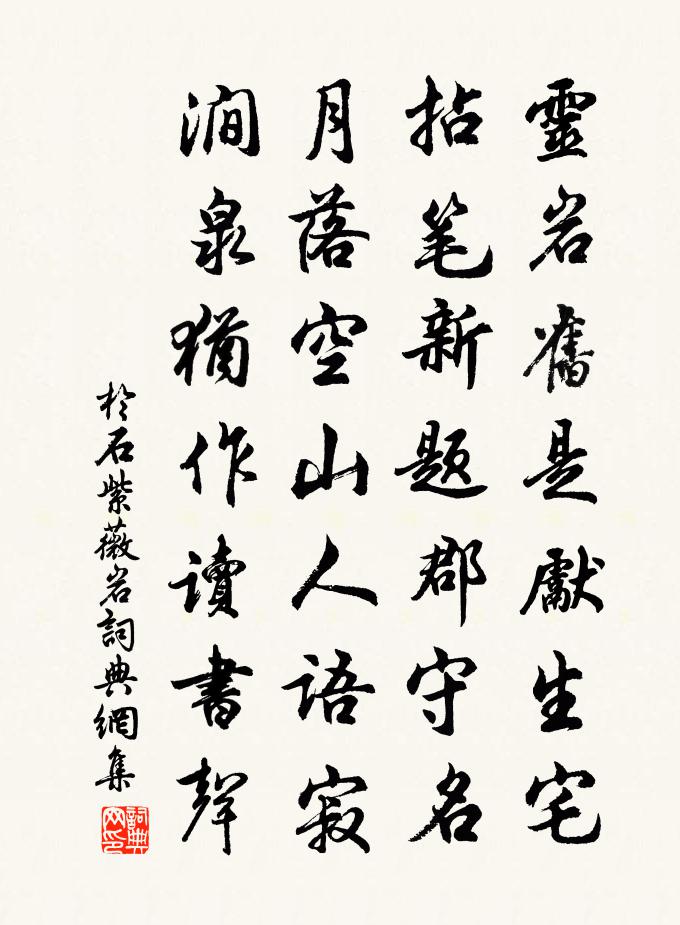 靈岩舊是獻生宅
拈笔新题郡守名
月落空山人语寂
澗泉猶作讀書聲
於石紫薇岩詞典網集
詞典网印